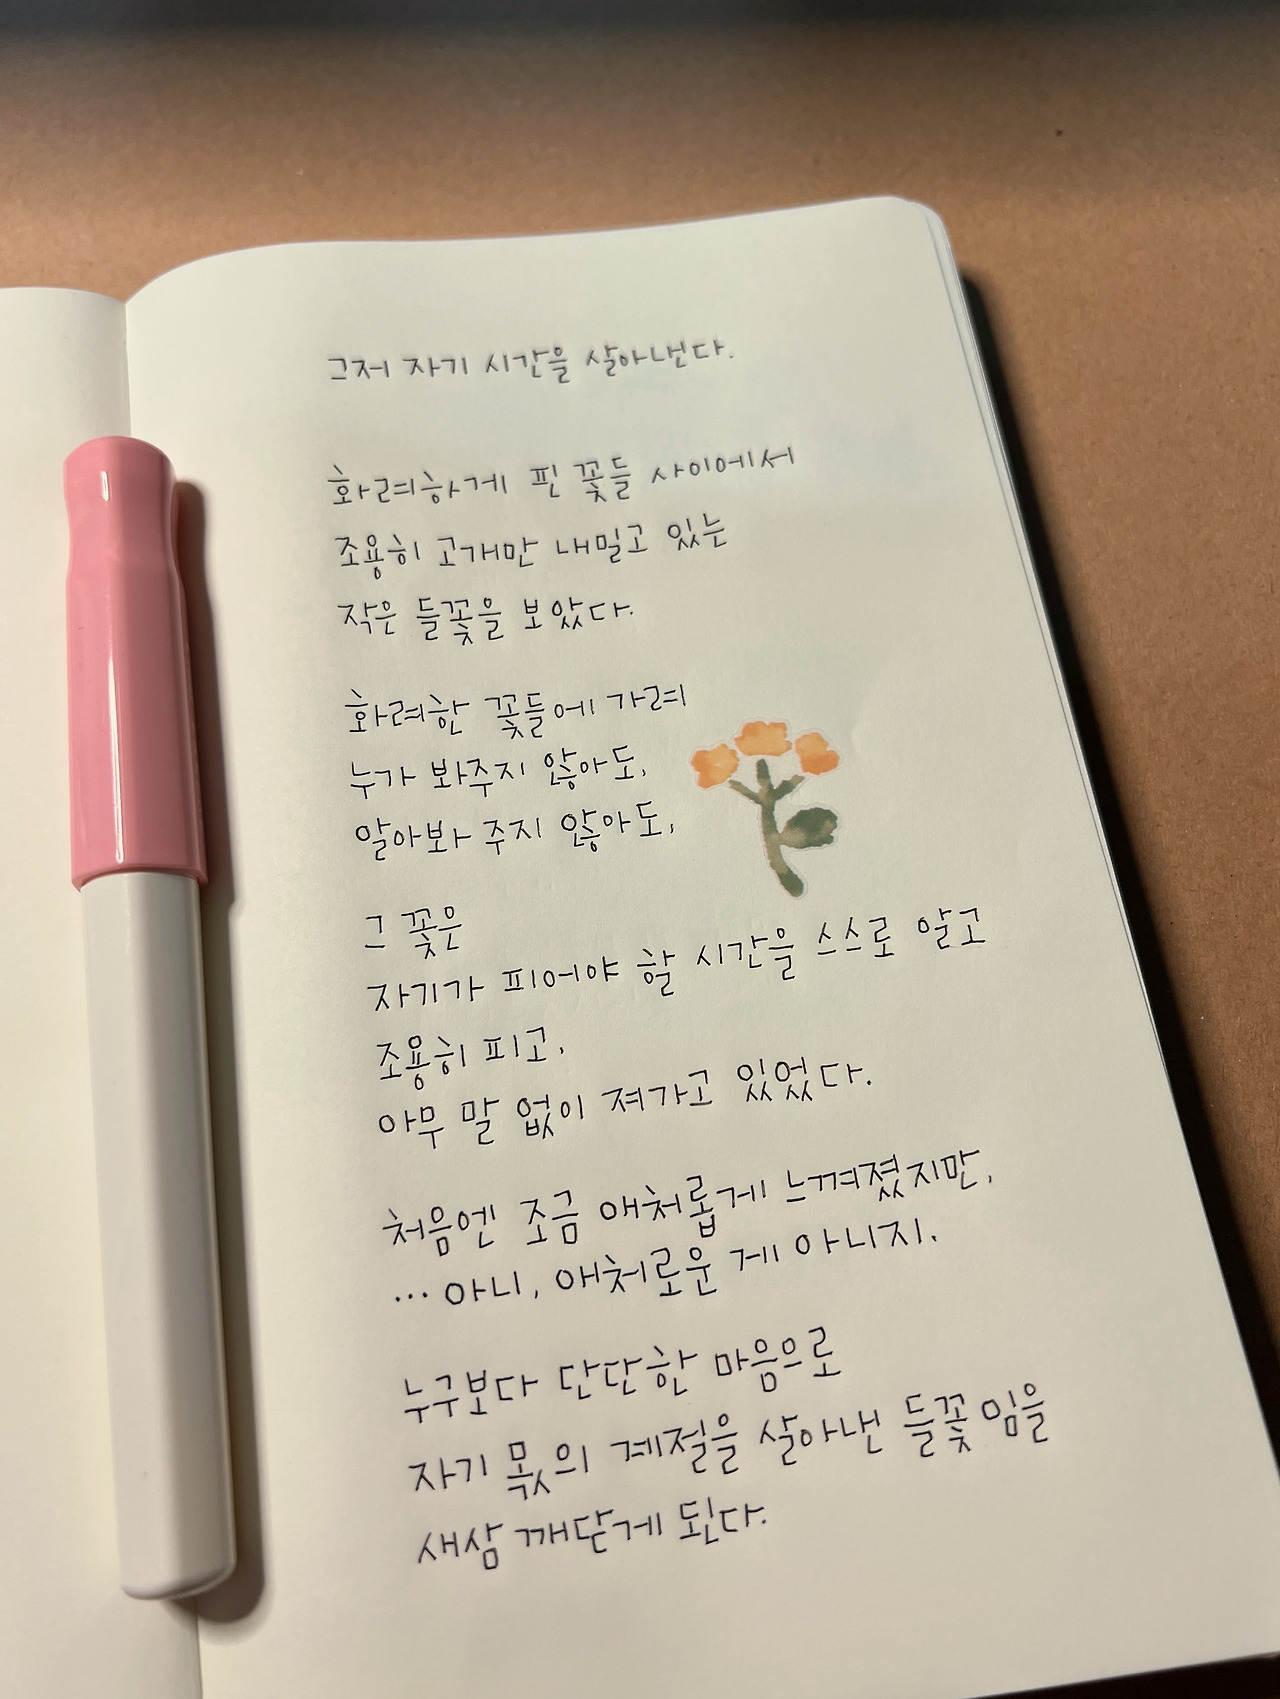 그저 자기 시간을 살아낸다.
화려하게 핀 꽃들 사이에서
조용히 고개만 내밀고 있는
작은 들꽃을 보았다.
화려한 꽃들에 가려
누가 봐주지 않아도,
알아봐 주지 않아도,
그 꽃은
자기가 피어야 할 시간을 스스로 알고
조용히 피고,
아무 말 없이 져가고 있었다.
처음엔 조금 애처롭게 느껴졌지만,
… 아니, 애처로운 게 아니지.
누구보다 단단한 마음으로
자기 몫의 계절을 살아낸 들꽃임을
새삼 깨닫게 된다.